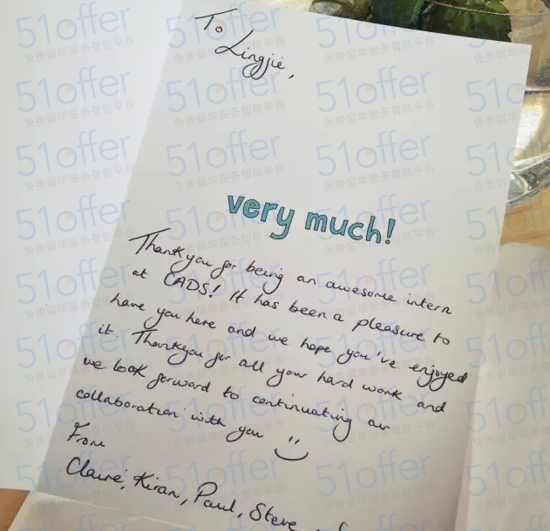 To Lingjie,
very much!
Thankyou for being an awesome intern
at CADS! It has been a pleasure to
have you here and we hope you've enjoyed
it. Thankyou for all your hard work and
we look forward to continuating our
collaboration with you
From
Claire, Kiran, Paul, Steve
51offer
免费留学服务智能平台